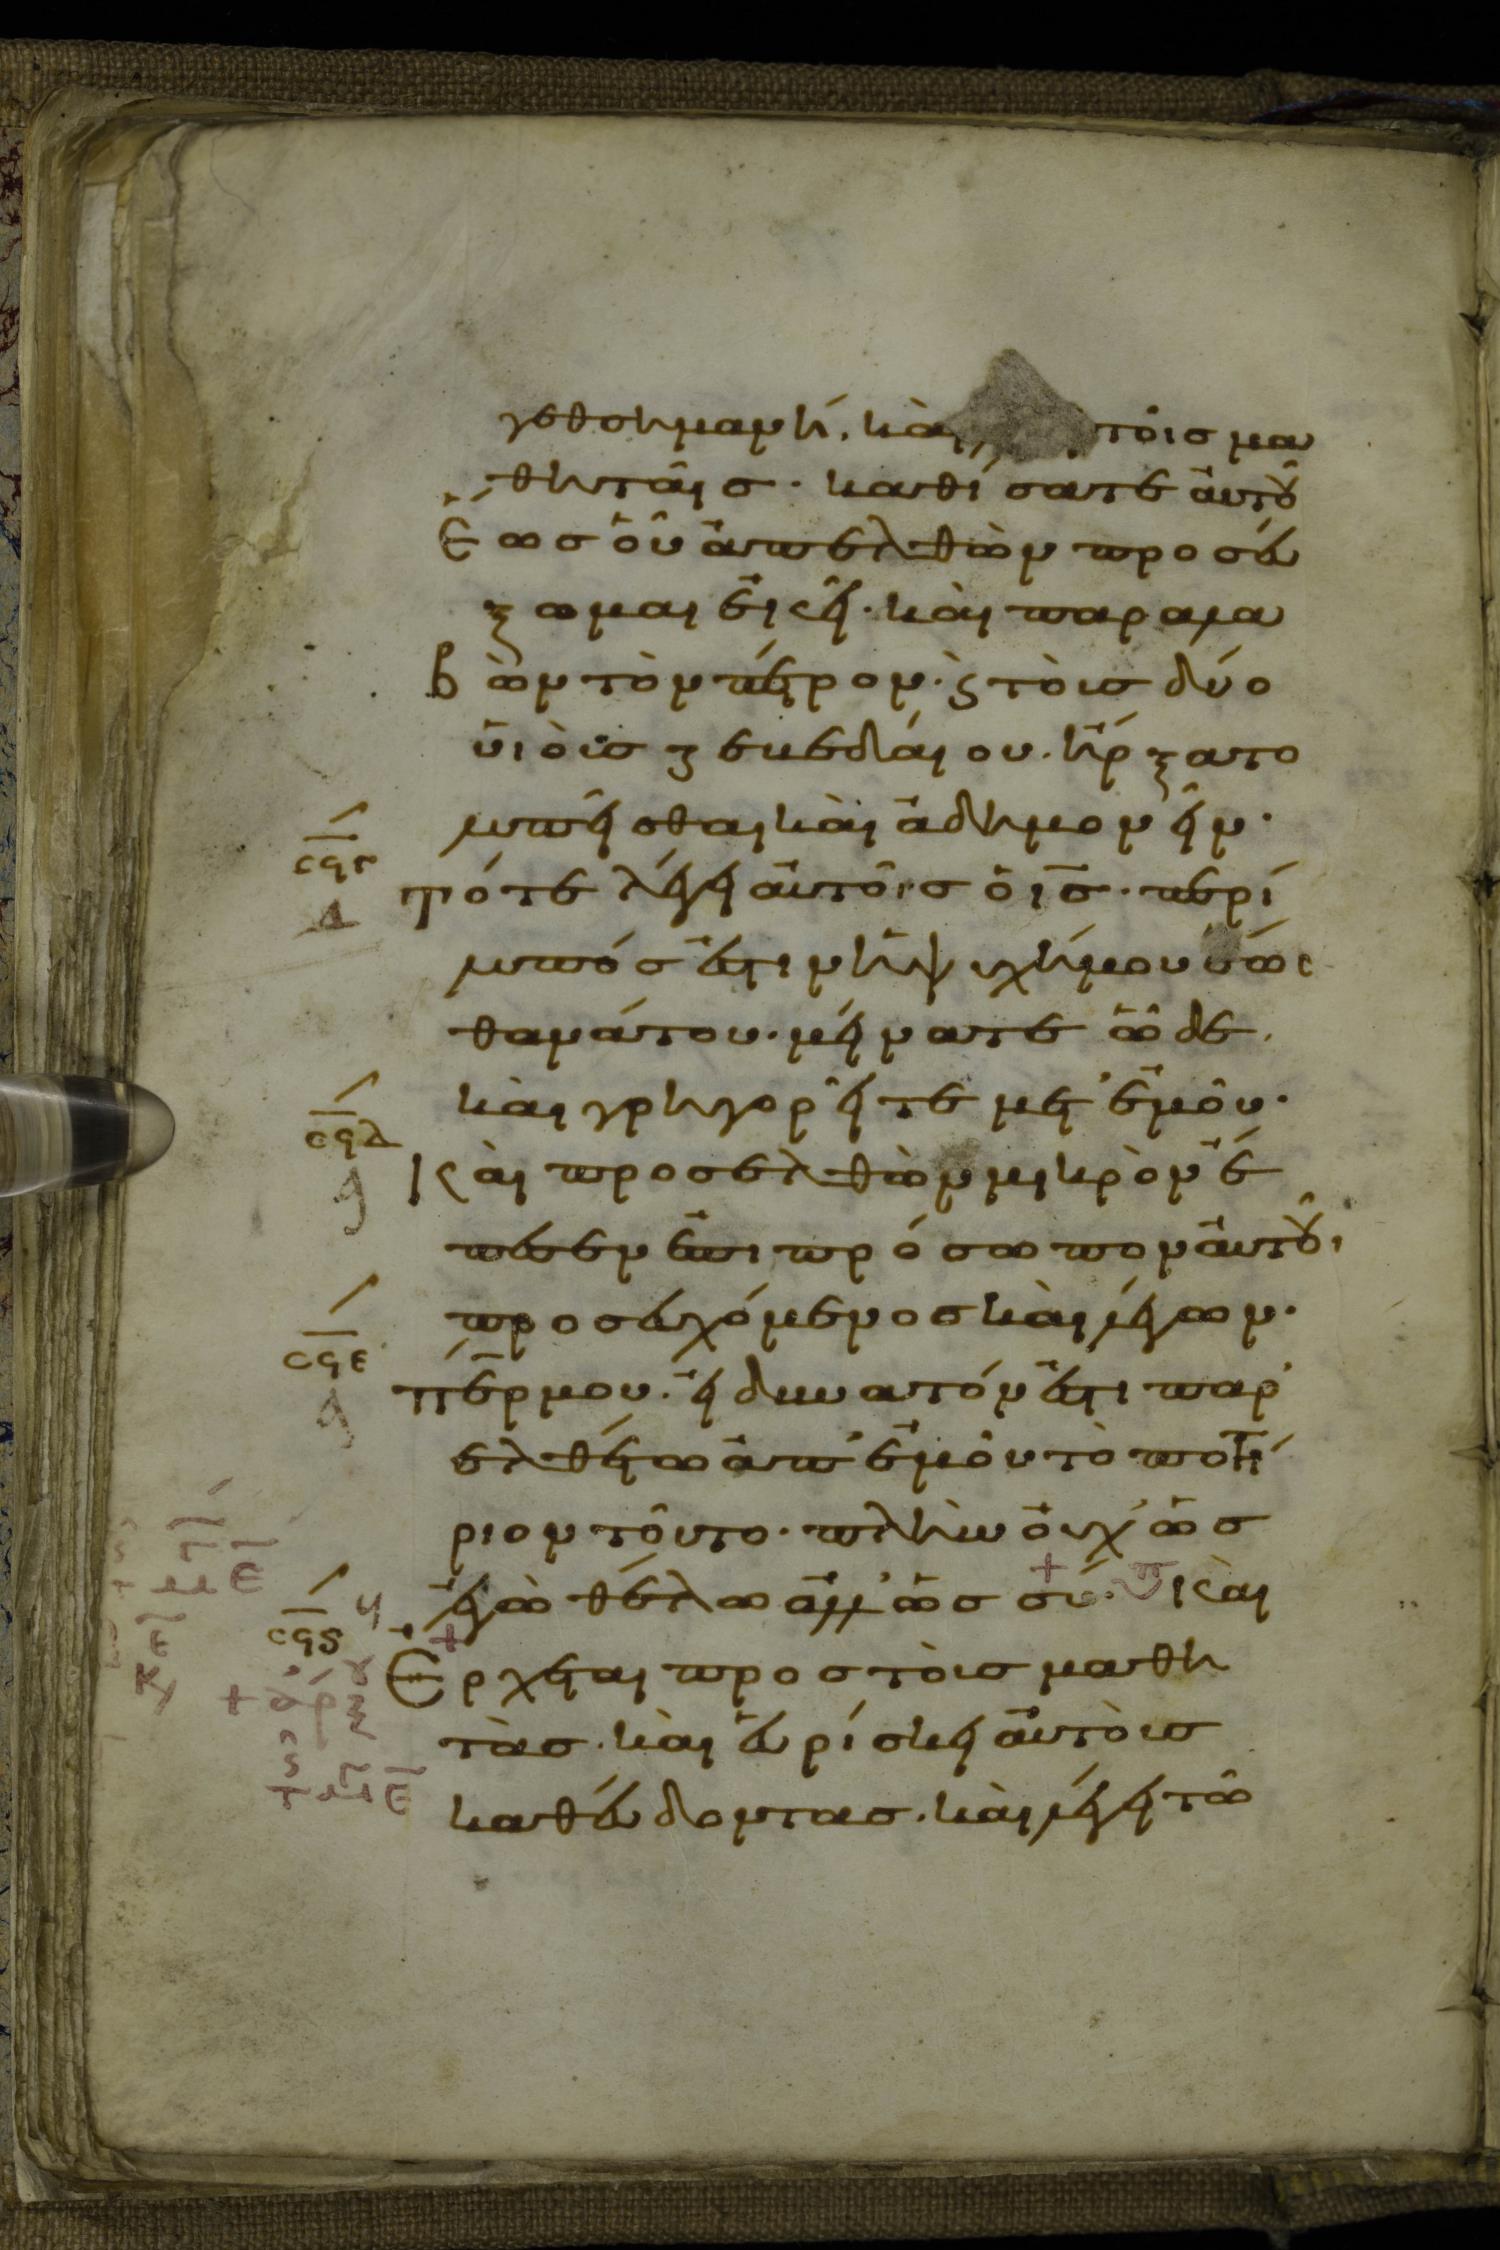 γεθσημανή. καὶ τοῖς μα
θηταῖς· καθίσατε αὐτοῦ
ἕως οὗ ἀπελθὼν προσεύ
ξωμαι ἐκεῖ· καὶ παραλα
βὼν τὸν πέτρον· ϗ τοὺς δύο
υἱοὺς ζεβεδαίου. ἤρξατο
λυπεῖσθαι καὶ ἀδημονεῖν·
τότε λέγει αὐτοῖς ὁ ις· περί
λυπός ἐστιν ἡ ψυχή μου ἕως
θανάτου· μείνατε ὧδε.
καὶ γρηγορεῖτε μετ' ἐμοῦ·
καὶ προσελθὼν μικρὸν ἔ
πεσεν ἐπι πρόσωπον αὐτοῦ,
προσευχόμενος καὶ λέγων·
πέρ μου. εἰ δυνατόν ἐστι παρ
ελθέτω ἀπ' ἐμοῦ τὸ ποτή
ριον τοῦτο· πλὴν οὐχ' ὡς
ἐγὼ θέλω ἀλλ' ὡς σύ· καὶ
ἔρχεται προς τοὺς μαθη
τὰς. καὶ εὑρίσκει αὐτοὺς
καθεύδοντας. καὶ λέγει τῶ
σϟγ
δ
σϟδ
σϟε
σϟς